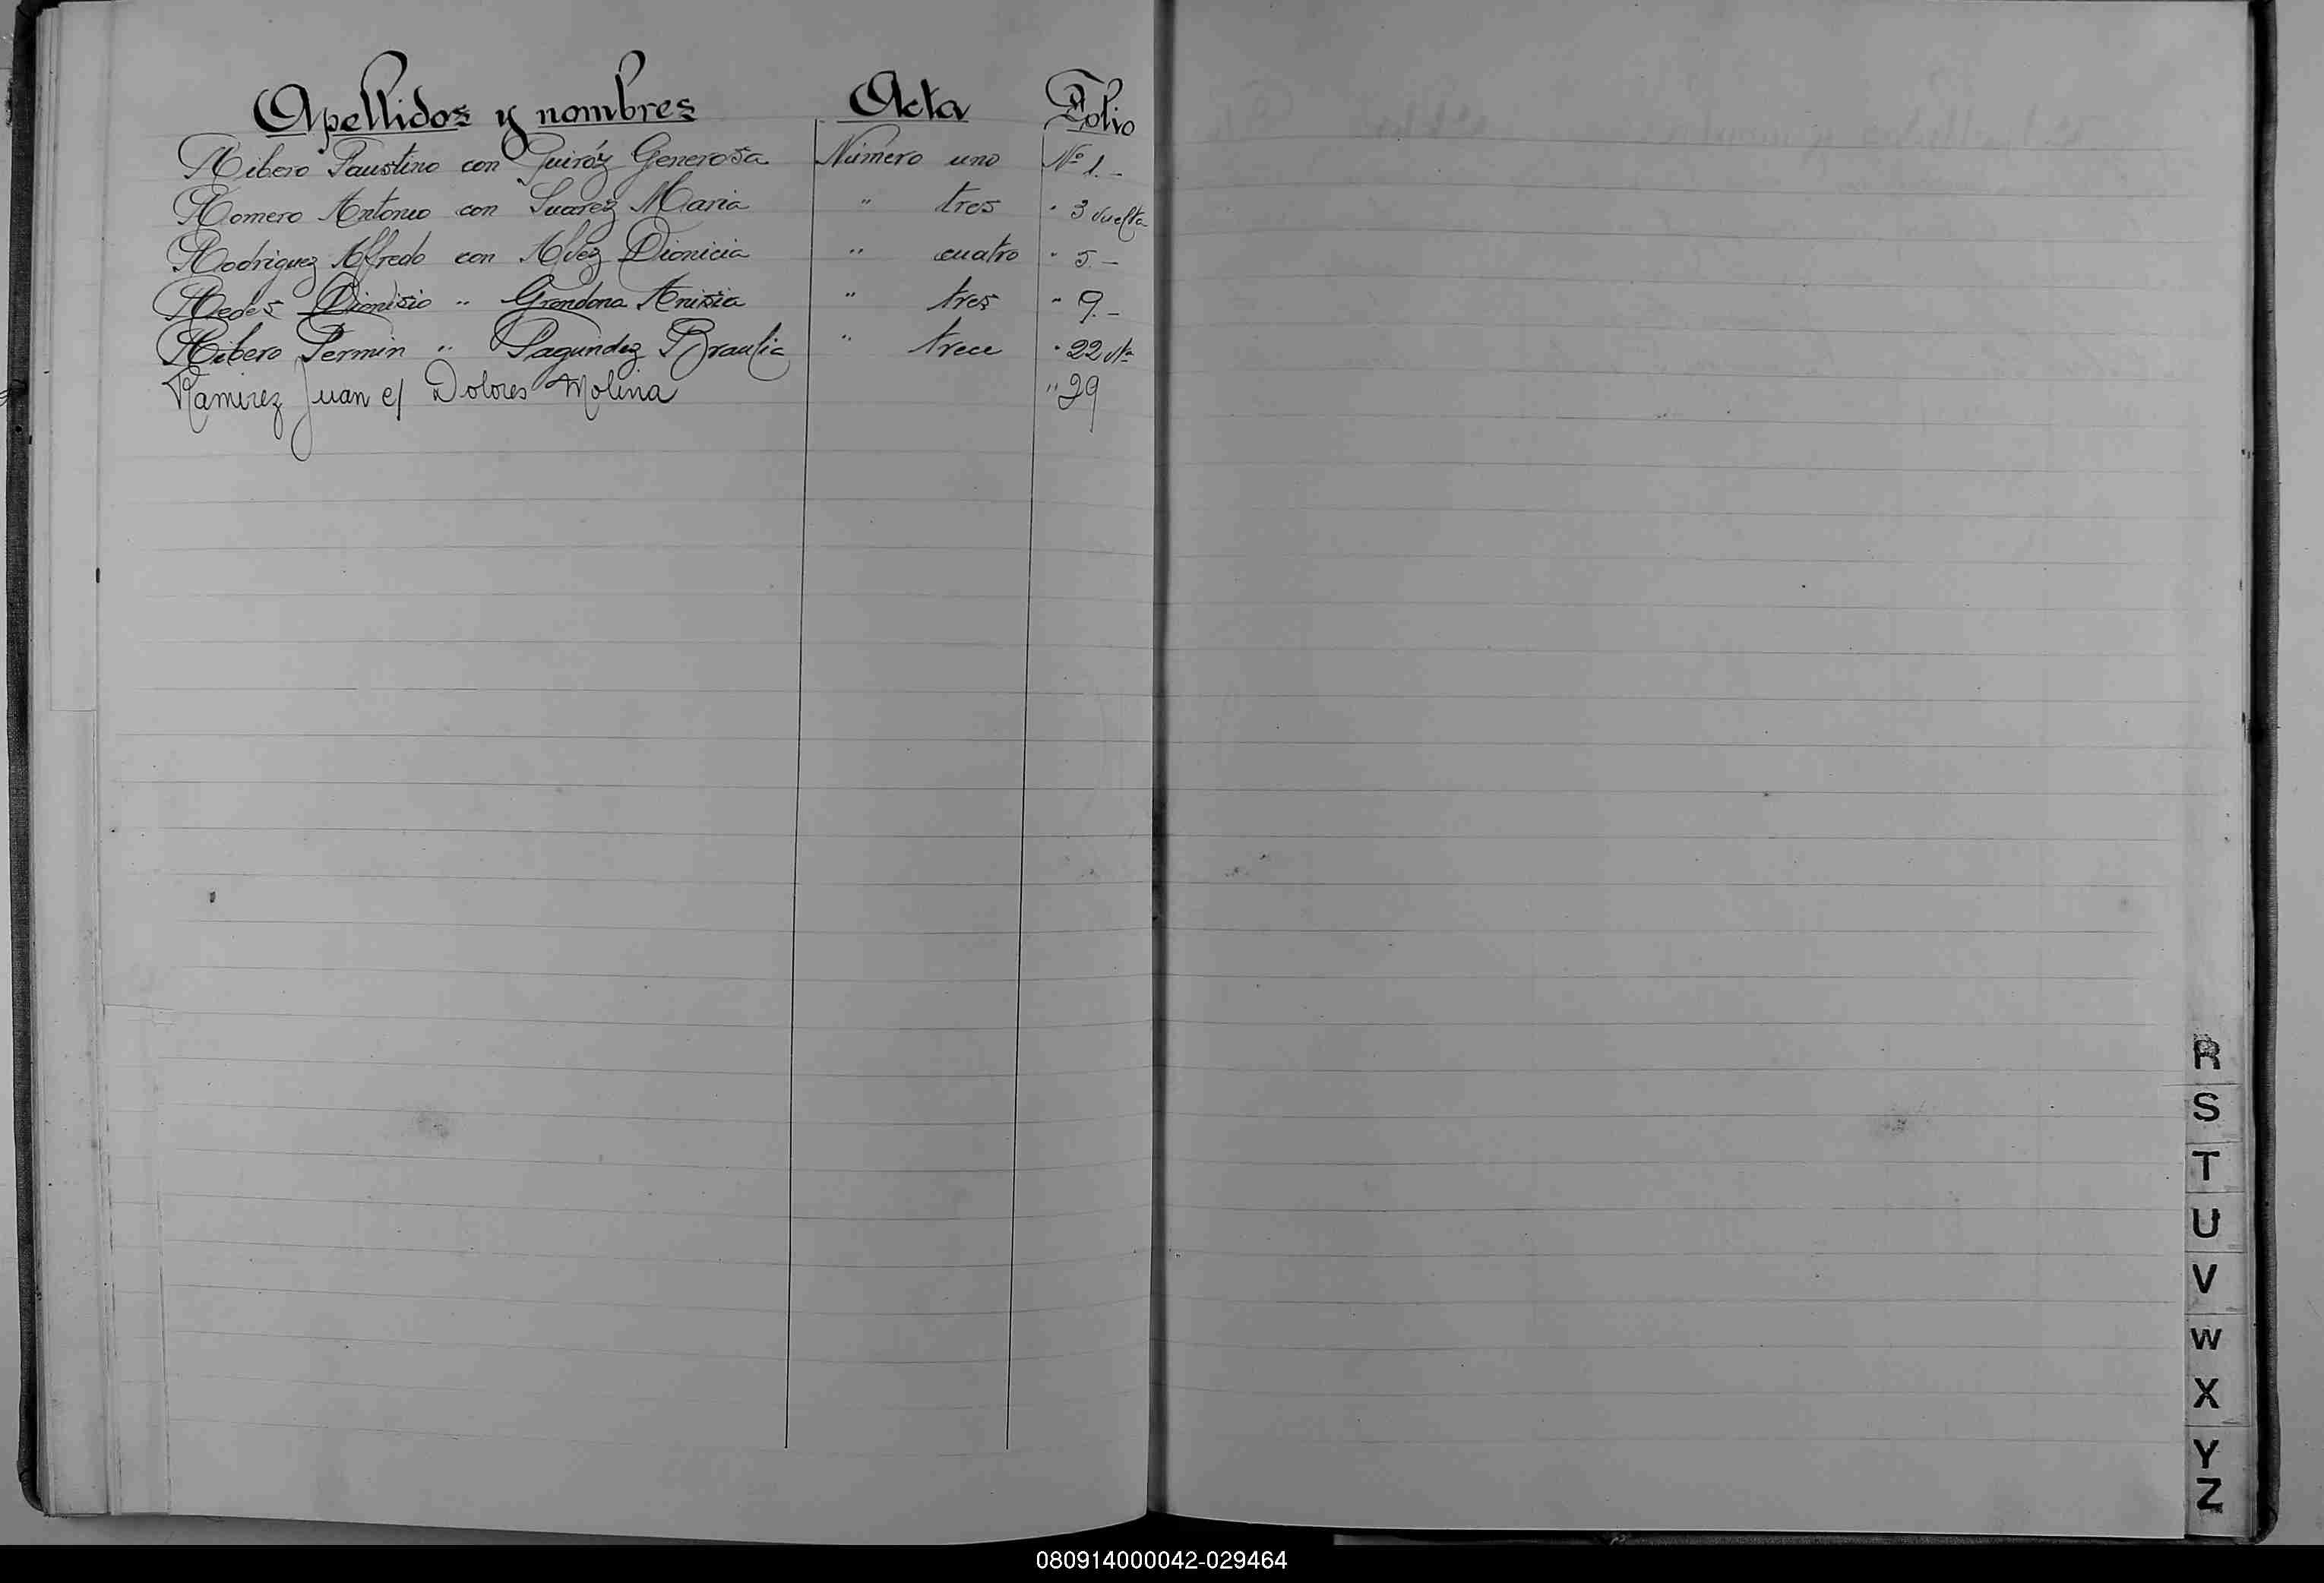 Apellidos y nombres Acta Folio
Ribero Faustino con Quiróz Generosa Número uno Nº 1.-
Romero Antonio con Suarez Maria " tres " 3 vuelta
Rodriguez Alfredo con Alvez Dionicia " cuatro " 5.-
Redes Dionisio " Grondona Anisia " tres " 9.-
Ribero Fermin " Fagundez Braulia " trece " 22 vta
Ramirez Juan c/ Dolores Molina " 29
R
S
T
U
V
W
X
Y
Z
080914000042-029464